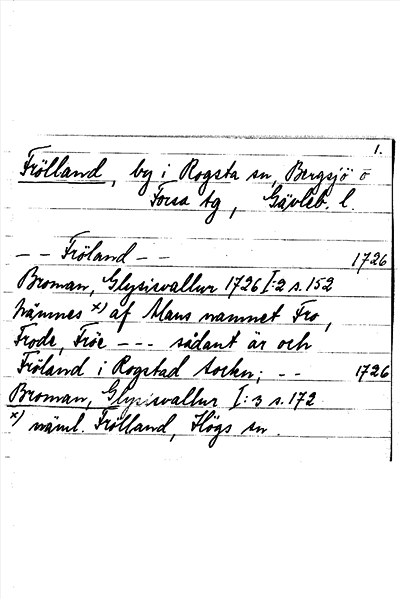 1.
Frölland, by i Rogsta sn, Bergsjö o
Forsa tg, Gävleb. l.
-- Fröland -- 1726
Broman, Glysisvallur 1726 I:2 s. 152
nämnes x) af Mans namnet Fro,
Frode, Fröe --- sådant är och
Fröland i Rogstad socken; -- 1726
Broman, Glysisvallur I:3 s. 172
x) näml. Frölland, Högs sn.